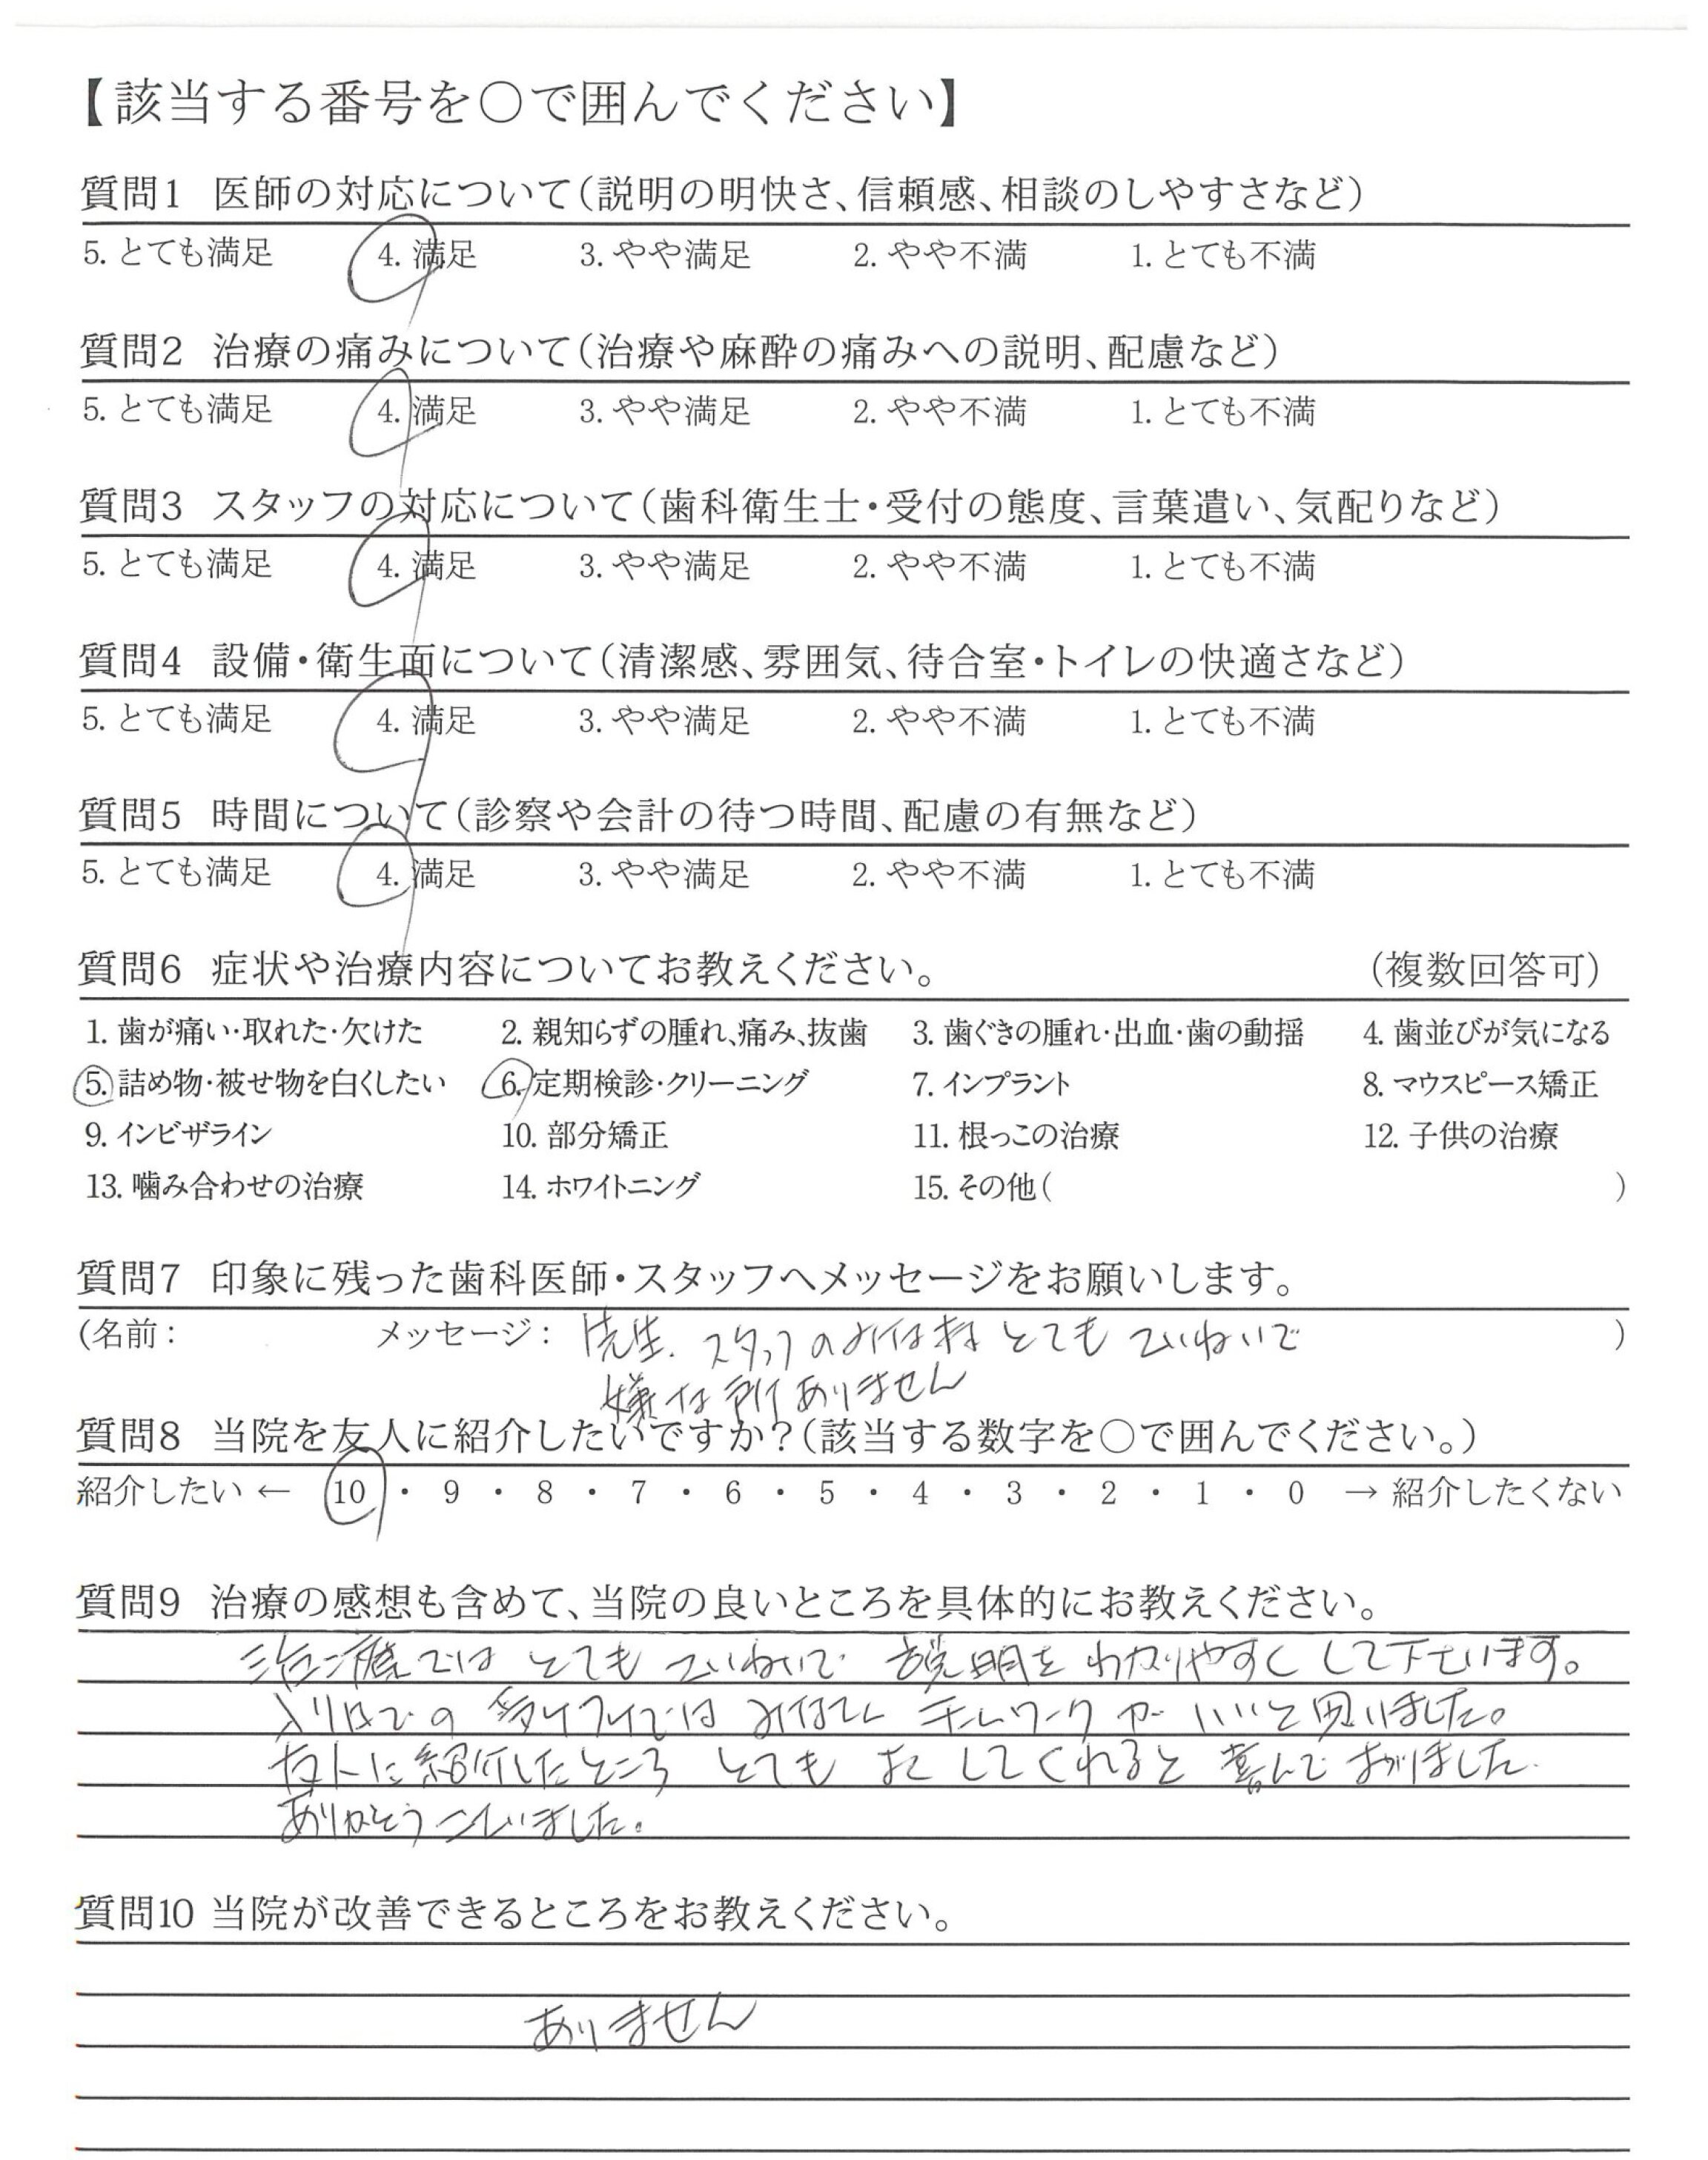 【該当する番号を○で囲んでください】
質問1 医師の対応について(説明の明快さ、信頼感、相談のしやすさなど)
5. とても満足 4. 満足 3. やや満足 2. やや不満 1. とても不満
質問2 治療の痛みについて(治療や麻酔の痛みへの説明、配慮など)
5. とても満足 4. 満足 3. やや満足 2. やや不満 1. とても不満
質問3 スタッフの対応について(歯科衛生士・受付の態度、言葉遣い、気配りなど)
5. とても満足 4. 満足 3. やや満足 2. やや不満 1. とても不満
質問4 設備・衛生面について(清潔感、雰囲気、待合室・トイレの快適さなど)
5. とても満足 4. 満足 3. やや満足 2. やや不満 1. とても不満
質問5 時間について(診察や会計の待つ時間、配慮の有無など)
5. とても満足 4. 満足 3. やや満足 2. やや不満 1. とても不満
質問6 症状や治療内容についてお教えください。 (複数回答可)
1. 歯が痛い・取れた・欠けた 2. 親知らずの腫れ、痛み、抜歯 3. 歯ぐきの腫れ・出血・歯の動揺 4. 歯並びが気になる
5. 詰め物・被せ物を白くしたい 6. 定期検診・クリーニング 7. インプラント 8. マウスピース矯正
9. インビザライン 10. 部分矯正 11. 根っこの治療 12. 子供の治療
13. 噛み合わせの治療 14. ホワイトニング 15. その他( )
質問7 印象に残った歯科医師・スタッフへメッセージをお願いします。
(名前: メッセージ: 先生、スタッフのみなさまとても ていねいで )
嫌な所ありません
質問8 当院を友人に紹介したいですか?(該当する数字を○で囲んでください。)
紹介したい ← 10 ・ 9 ・ 8 ・ 7 ・ 6 ・ 5 ・ 4 ・ 3 ・ 2 ・ 1 ・ 0 → 紹介したくない
質問9 治療の感想も含めて、当院の良いところを具体的にお教えください。
治療ではとても ていねいで 説明をわかりやすくして下さいます。
チームワークが いいと思いました。
友人に紹介したところ とても してくれると 喜んでおりました
ありがとうございました。
質問10 当院が改善できるところをお教えください。
ありません